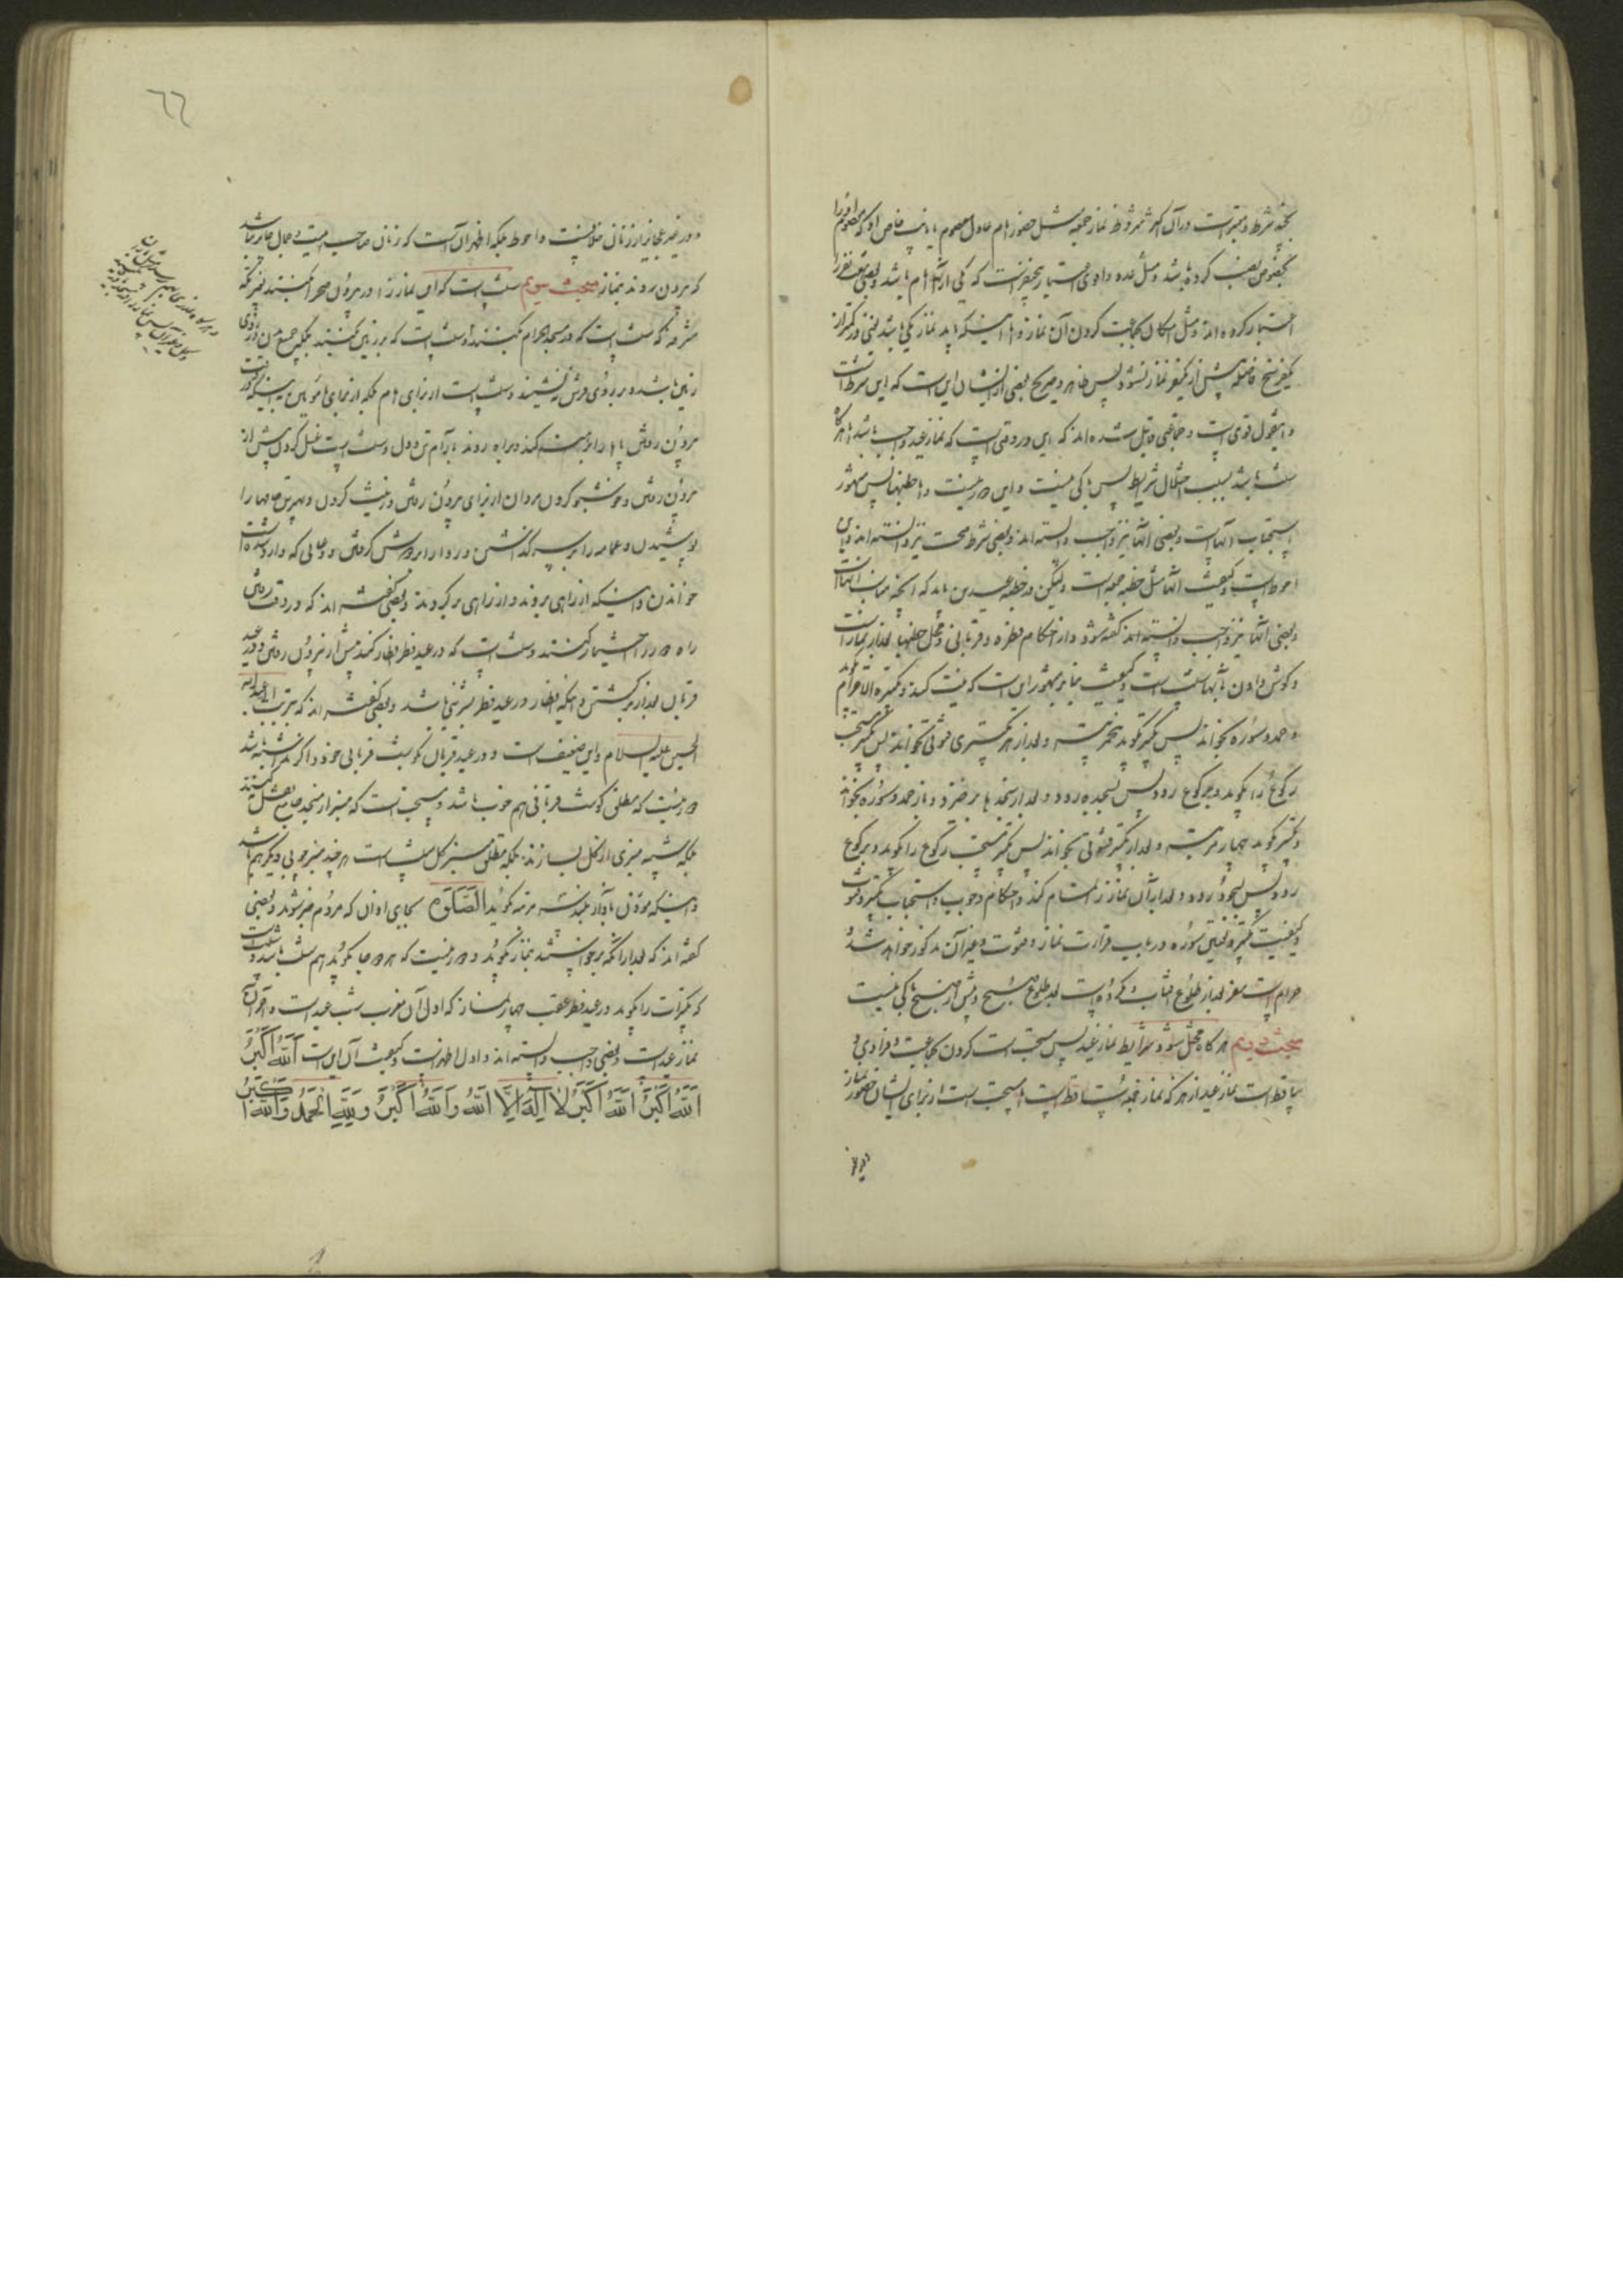 بجمعه شرط و معتبر است در آن اکثر شروط نماز جمعه مثل حضور امام عادل معصوم یا نایب خاص او که معصوم او را
بخصوص نصب کرده باشد و مثل عدد و اقوی اعتبار پنج نفر است که یکی از آنها امام باشد و بعضی هفت نفر را
اعتبار کرده‌اند و مثل امکان بجماعت کردن آن نماز و اما اینکه باید نماز یکی باشد یعنی در کمتر از
یکفرسخ فاصله بیش از یک نماز نشود پس ظاهر و صریح بعضی از ایشان این است که این شرط است
و این قول قوی است و جماعتی قایل شده‌اند که این در وقتی است که نماز عید واجب باشد اما هرگاه
سنت باشد بسبب اختلال شرایط پس باکی نیست و این دور نیست و اما خطبها پس مشهور
استحباب آنهاست و بعضی آنها را نیز واجب دانسته‌اند و بعضی شرط صحت نیز دانسته‌اند و این
احوط است و کیفیت آنها مثل خطبه جمعه است و لیکن در خطبه عیدین باید که آنچه مناسب آنهاست
و بعضی آنها را نیز واجب دانسته‌اند گفته شود و از احکام فطره و قربانی و محل خطبها بعد از نماز است
و گوش دادن بآنها سنت است و کیفیت بنابر مشهور این است که نیت کند و تکبیرة الاحرام گوید
و حمد و سوره بخواند پس تکبیر گوید پنج مرتبه و بعد از هر تکبیری قنوتی بخواند پس تکبیر مستحب
رکوع را بگوید و برکوع رود پس بسجده رود و بعد از سجده‌ها برخیزد و باز حمد و سوره بخواند
و تکبیر گوید چهار مرتبه و بعد از هر تکبیر قنوتی بخواند پس تکبیر مستحب رکوع را بگوید و برکوع
رود پس بسجود رود و بعد از آن نماز را تمام کند و احکام وجوب و استحباب تکبیر و قنوت
و کیفیت تکبیر و تعیین سوره در باب قرائت نماز و قنوت و غیر آن مذکور خواهد شد و
حرام است سفر بعد از طلوع آفتاب و مکروه است بعد از طلوع صبح و پیش از صبح باکی نیست
مبحث دویم هرگاه مختل شود شرایط نماز عید پس مستحب است کردن بجماعت و فرادی و
ساقط است نماز عید از هر که نماز جمعه ساقط است و مستحب است از برای ایشان حضور نماز
و در غیر
٦٦
و در غیر عجایز از زنان خلافیست و احوط بلکه اظهر آن است که زنان صاحب هیئت و جمال جایز نباشد
که بیرون روند بنماز مبحث سیوم سنت است که این نماز را در بیرون صحرا کنند بغیر مکه
مشرفه که سنت است که در مسجد الحرام بکنند و سنت است که بر زمین کنند بلکه جمیع بدن در روی
زمین باشد و بر روی فرش ننشینند و سنت است از برای امام بلکه از برای مأمومین نیز اینکه در وقت
بیرون رفتن پاها را برهنه کند و براه روند بآرام تن و دل و سنت است غسل کردن پیش از
بیرون رفتن و خوشبو کردن مردان از برای بیرون رفتن و زینت کردن و بهترین جامها را
پوشیدن و عمامه را بر سر گذاشتن و ردا را بر دوش گرفتن و دعائی که وارد شده است
خواندن و اینکه از راهی بروند و از راهی برگردند و بعضی گفته‌اند که در وقت رفتن
راه دورتر را اختیار کنند و سنت است که در عید فطر افطار کند پیش از بیرون رفتن و در عید
قربان بعد از برگشتن و اینکه افطار در عید فطر بشیرینی باشد و بعضی گفته‌اند که بتربت ابی عبدالله
الحسین علیه السلام و این ضعیف است و در عید قربان بگوشت قربانی خود و اگر نداشته باشد
دور نیست که مطلق گوشت قربانی هم خوب باشد و مستحب است که منبر از مسجد جامع نقل نکنند
بلکه شبیه منبری از گل بسازند بلکه مطلق منبر گل سنت است هر چند منبر چوبی دیگر هم باشد
و اینکه مؤذن بآواز بلند سه مرتبه بگوید الصَّلٰوة بجای اذان که مردم خبر شوند و بعضی
گفته‌اند که بعد از آنکه برخواستند بنماز بگوید و دور نیست که هر دو جا بگوید هم سنت باشد و سنت است
که تکبیرات را بگوید در عید فطر عقب چهار نماز که اول آن مغرب شب عید است و آخر آن
نماز عید است و بعضی واجب دانسته‌اند و اول اظهر است و کیفیت آن این است اَللّٰهُ اَکْبَرُ
اَللّٰهُ اَکْبَرُ اَللّٰهُ اَکْبَرُ لَا اِلٰهَ اِلَّا اللّٰهُ وَاللّٰهُ اَکْبَرُ وَلِلّٰهِ الْحَمْدُ وَاللّٰهُ اَکْبَرُ